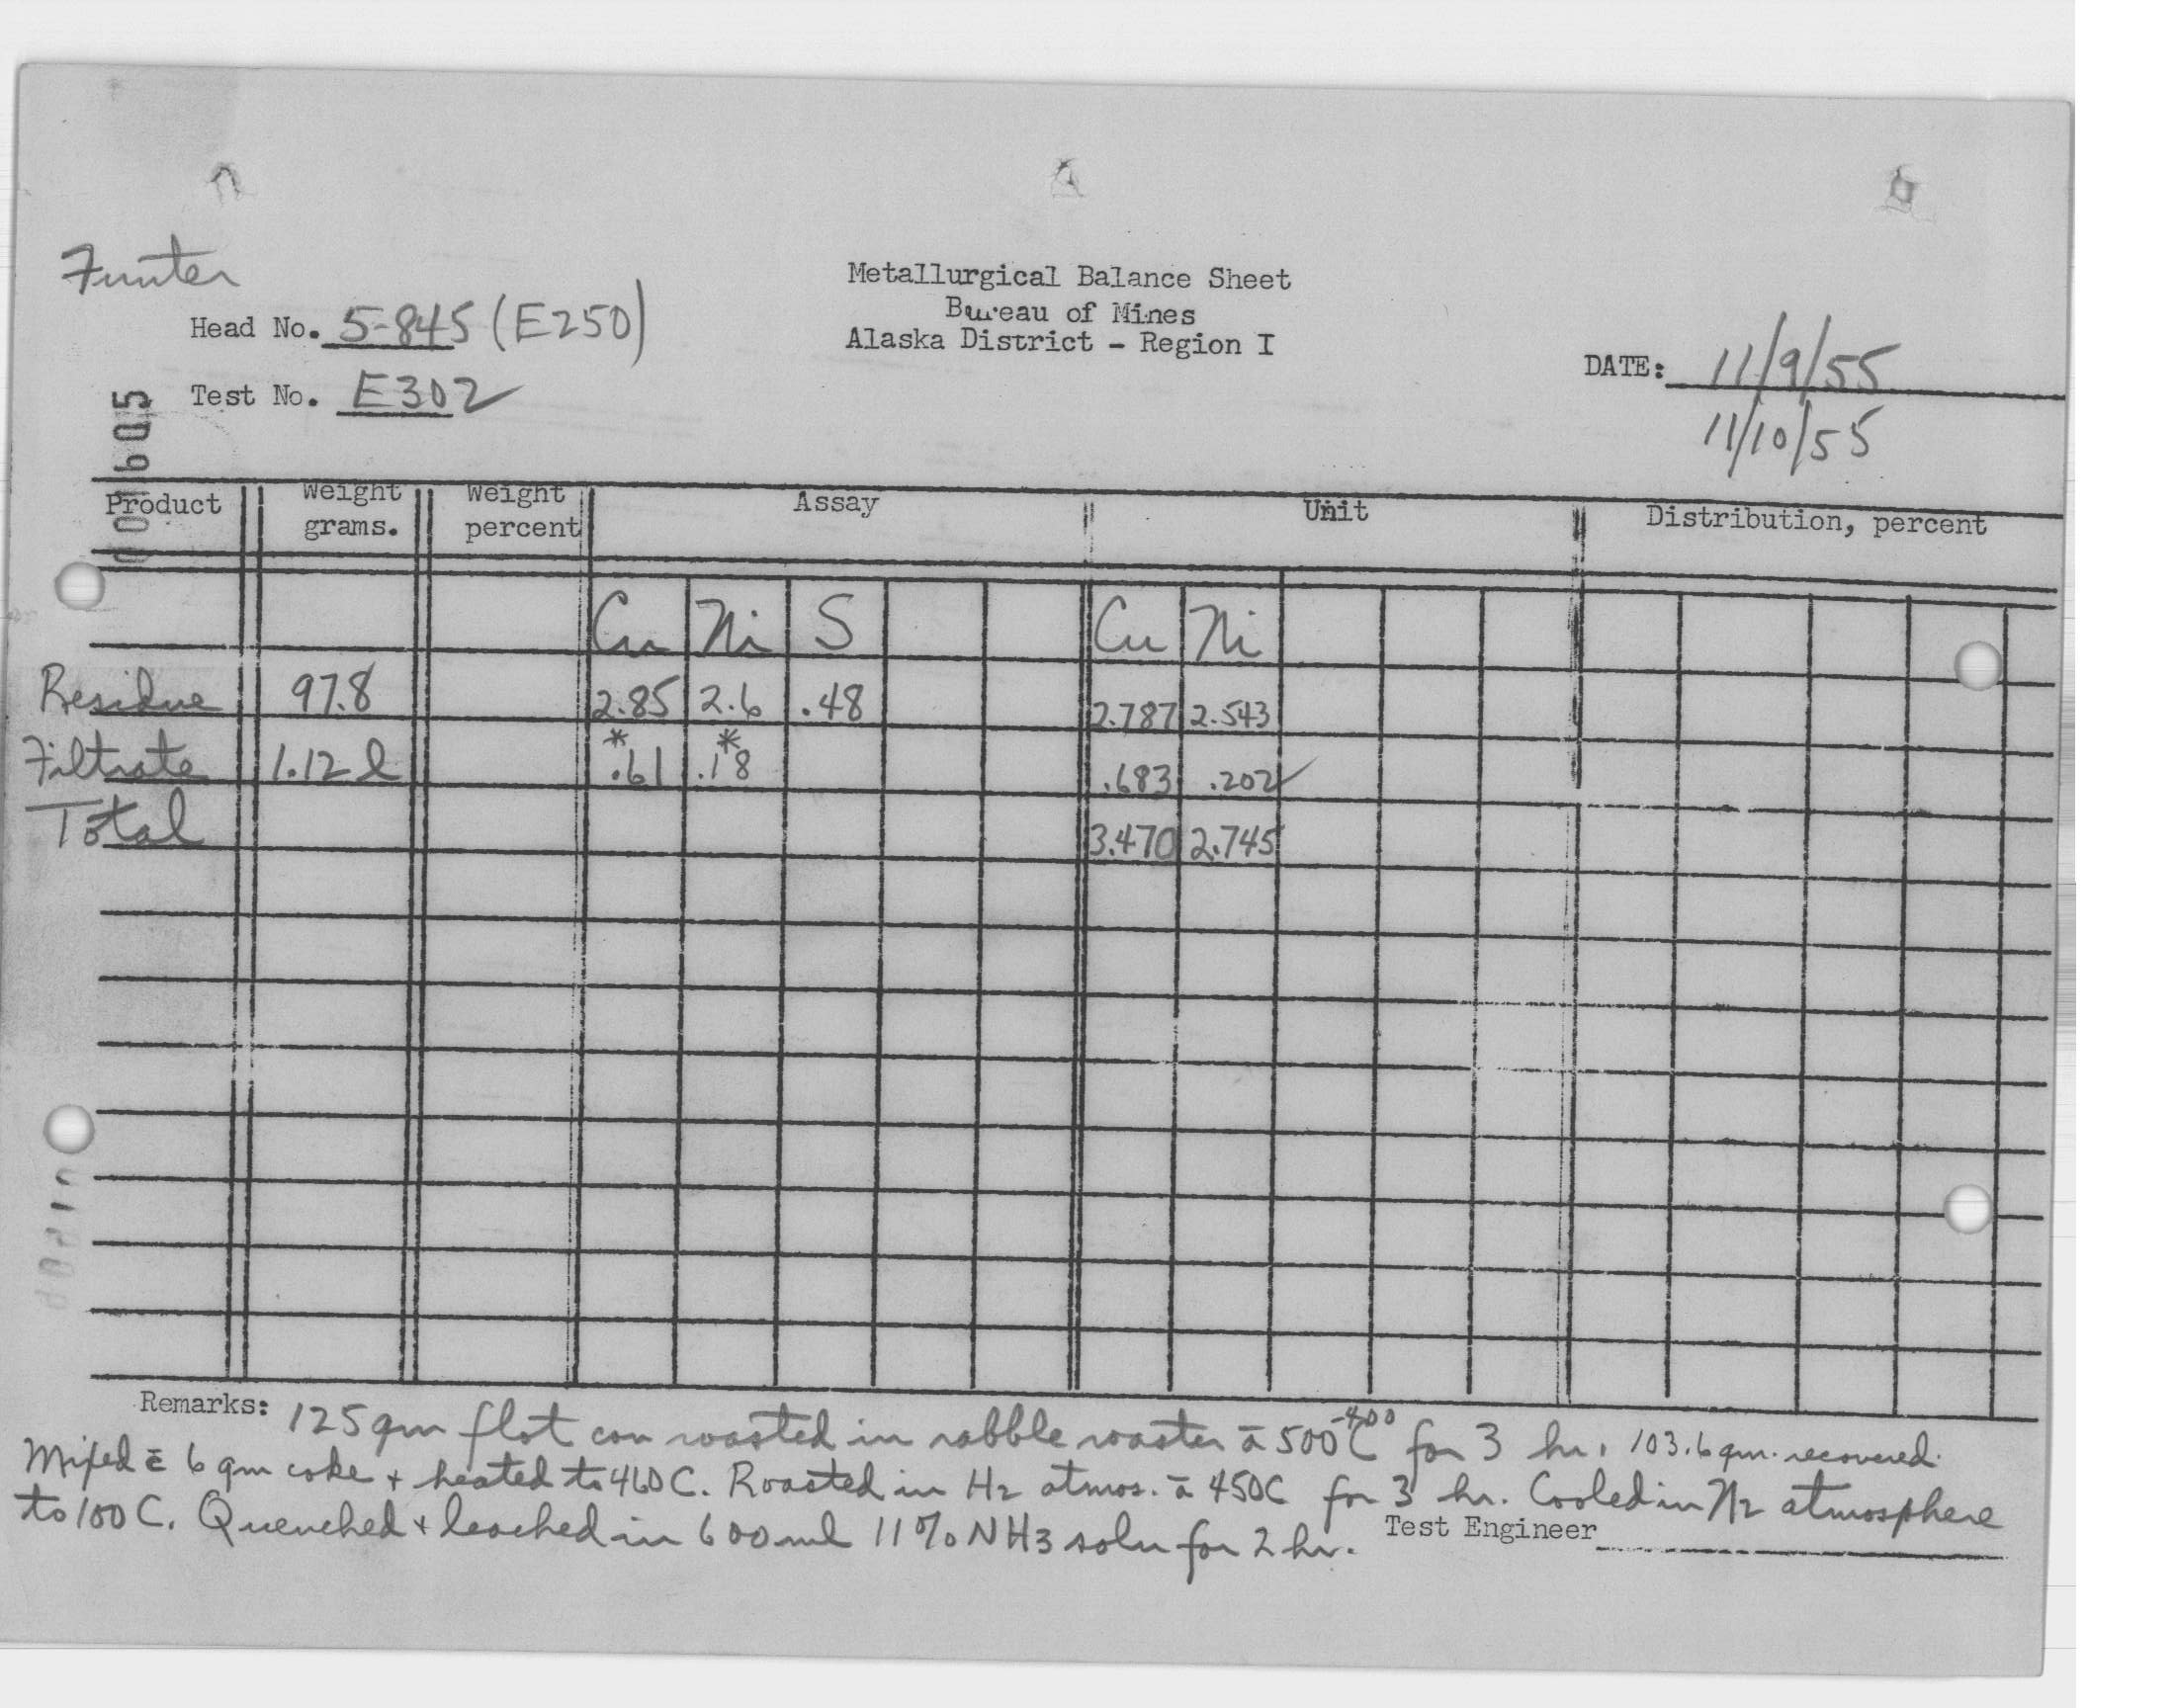 Funter
Metallurgical Balance Sheet
Bureau of Mines
Alaska District - Region I
Head No. 5-845 (E250)
Test No. E302
DATE: 11/9/55
11/10/55
Product Weight grams. Weight percent Assay Unit Distribution, percent
Cu Ni S Cu Ni
Residue 97.8 2.85 2.6 .48 2.787 2.543
Filtrate 1.12 l *.61 *.18 .683 .202
Total 3.470 2.745
Remarks: 125 gm flot con roasted in rabble roaster ā 500-400 C for 3 hr. 103.6 gm. recovered.
Mixed c̄ 6 gm coke + heated to 460 C. Roasted in H2 atmos. ā 450C for 3 hr. Cooled in N2 atmosphere
to 100 C. Quenched + leached in 600 ml 11% NH3 soln for 2 hr.
Test Engineer